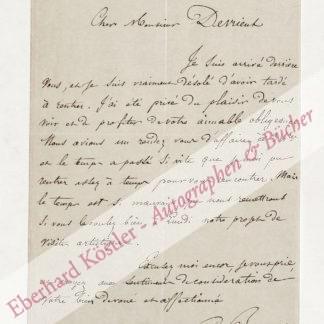 Cher Monsieur Devrient
Je suis arrivé derrière
Vous, et je suis vraiment désolé d'avoir tardé
à rentrer. J'ai été privé du plaisir de vous
voir et de profiter de votre aimable obligeance
Nous avions un rendez vous d'affaires
et le temps a passé si vite que je n'ai pu
rentrer assez à temps pour vous rencontrer. Mais
le temps est si mauvais que nous remettrons
si vous le voulez bien, à lundi notre projet de
visite artistique.
Excusez moi encore je vous prie
et croyez aux sentimens de considération de
votre bien dévoué et affectionné
Eberhard Köstler - Autographen & Bücher